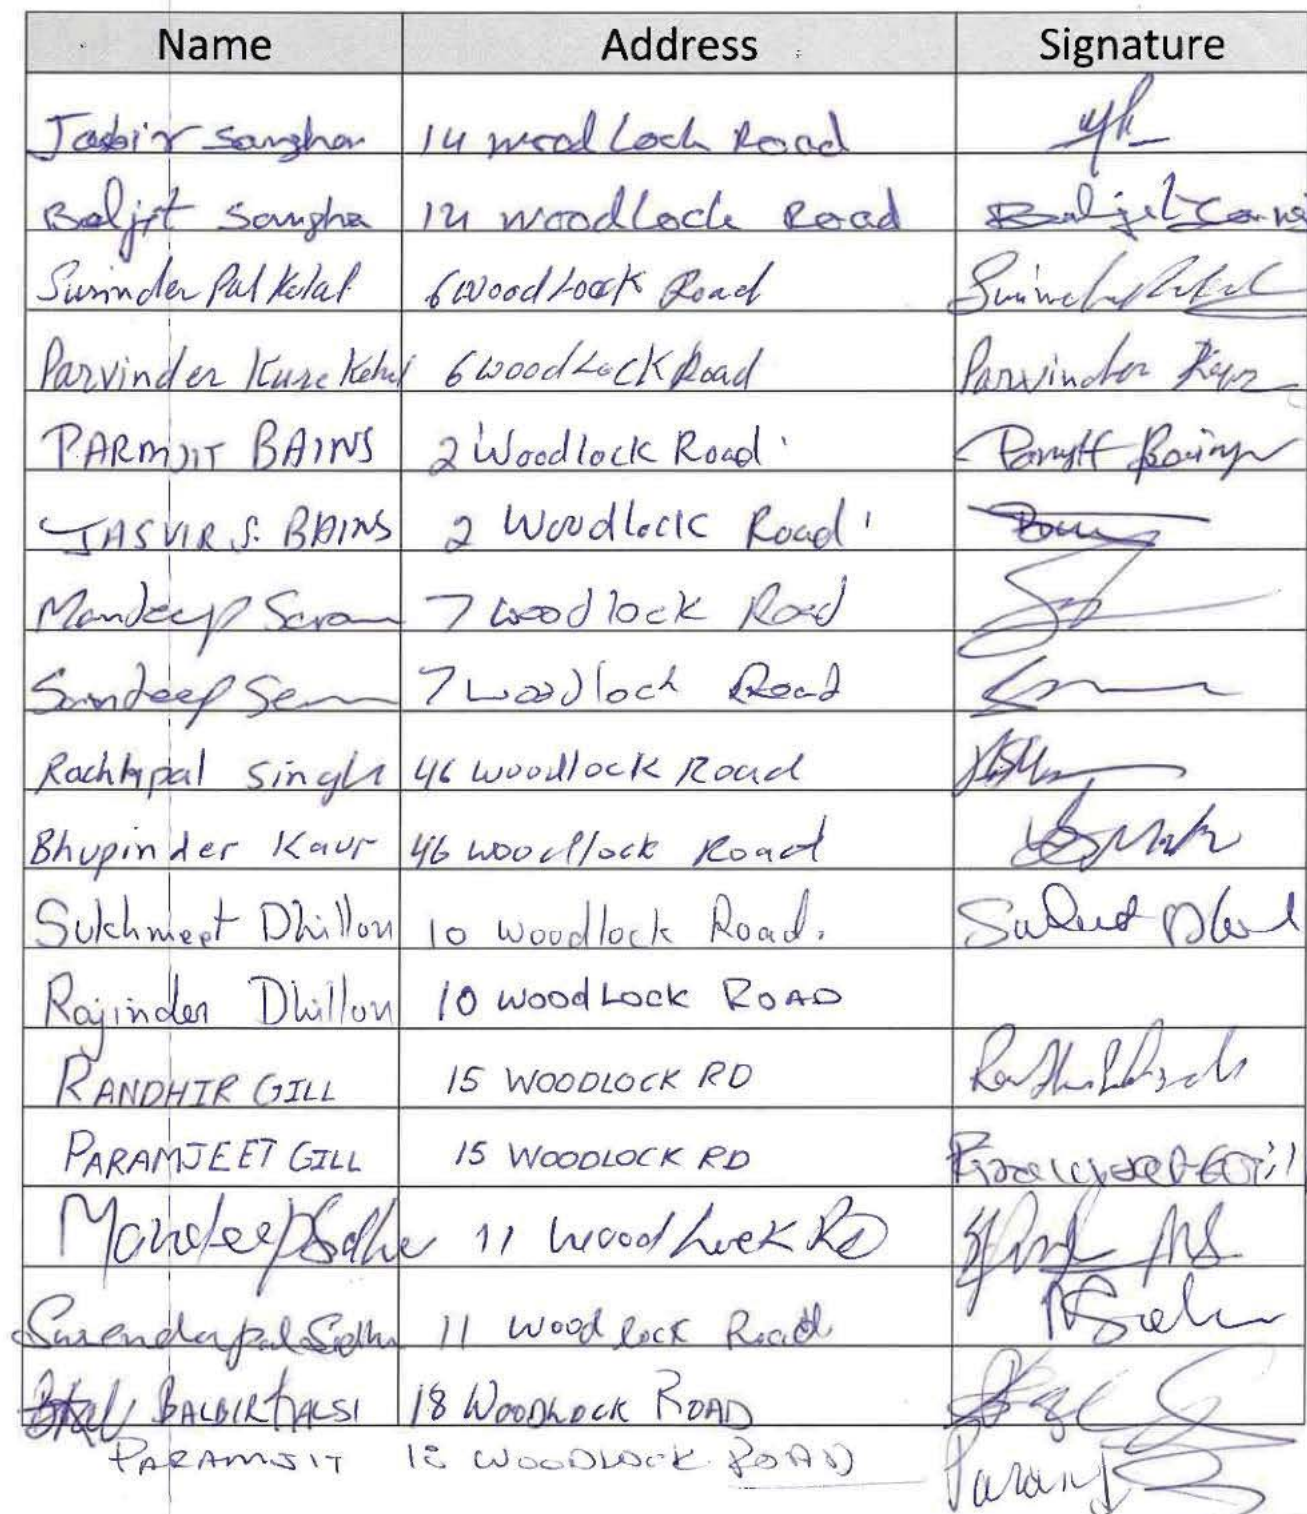 Name Address Signature
Jasbir Sangha 14 wood Lock Road
Baljit Sangha 14 woodLock Road Baljit
Surinder Pal Kelal 6 Wood Lock Road
Parvinder Kelal 6 WoodLock Road Parvinder Kaur
PARMJIT BAINS 2 Woodlock Road
JASVIR S. BAINS 2 Woodlock Road
Mandeep 7 woodlock Road
Sandeep 7 woodlock Road
Rachhpal Singh 46 woodlock Road
Bhupinder Kaur 46 woodlock Road
Sukhmeet Dhillon 10 Woodlock Road.
Rajinder Dhillon 10 WOODLOCK ROAD
RANDHIR GILL 15 WOODLOCK RD
PARAMJEET GILL 15 WOODLOCK RD
Mandeep Sidhu 11 Wood Lock Rd
Surendapal Sidhu 11 Wood Lock Road
BALBIR KALSI 18 WOODLOCK ROAD
PARAMJIT 18 WOODLOCK ROAD